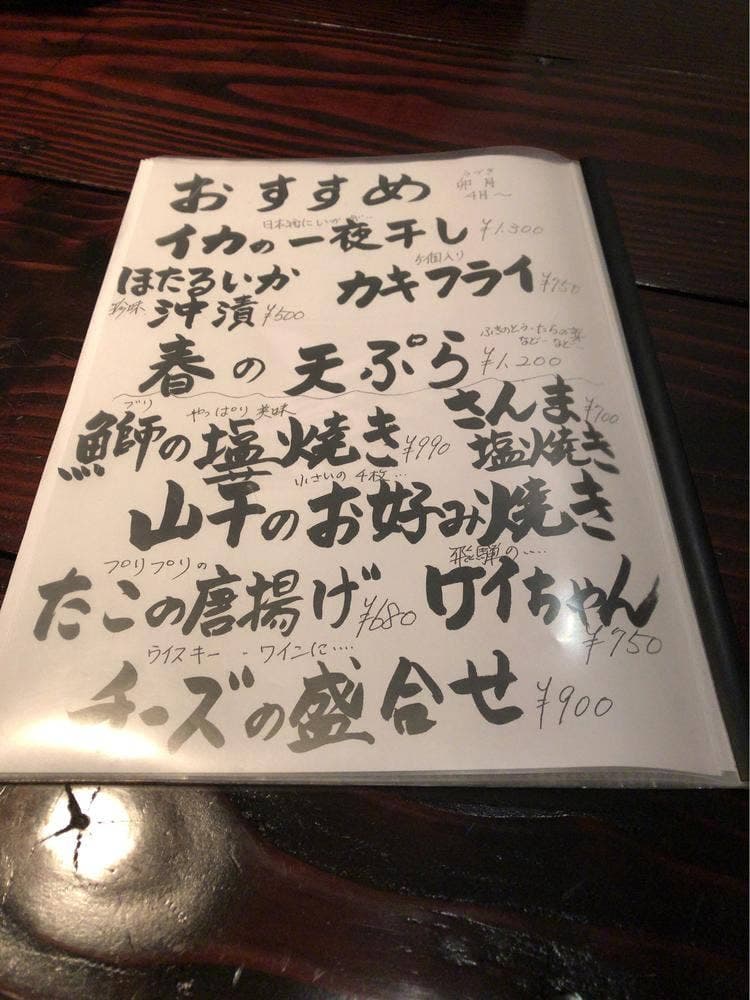 おすすめ
うづき
卯月
4月～
日本酒にいかが…
イカの一夜干し ¥1,300
ほたるいか
珍味 沖漬 ¥500
5個入り
カキフライ ¥750
ふきのとう・たらの芽
など・など…
春の天ぷら ¥1,200
ブリ やっぱり美味
鰤の塩焼き ¥990
さんま ¥700
塩焼き
小さいの4枚…
山芋のお好み焼き
プリプリの
たこの唐揚げ ¥680
飛騨の‥‥
ケイちゃん
¥750
ウイスキー・ワインに‥‥
チーズの盛合せ ¥900